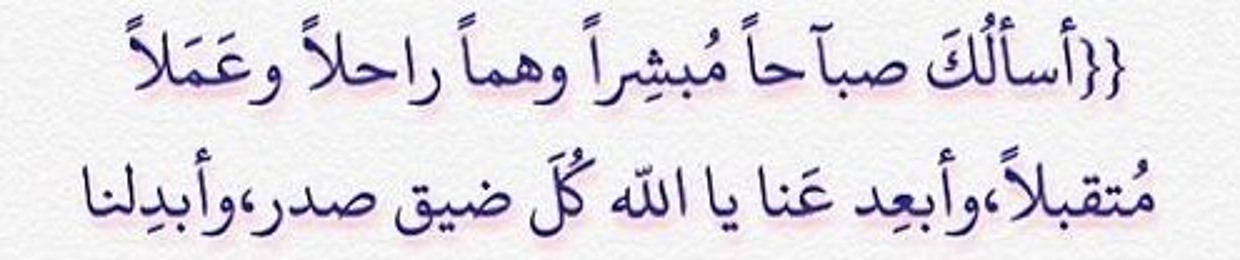 {{أسألُكَ صبآحاً مُبشِراً وهماً راحلاً وعَمَلاً
مُتقبلاً،وأبعِد عَنا يا الله كُلَ ضيق صدر،وأبدِلنا